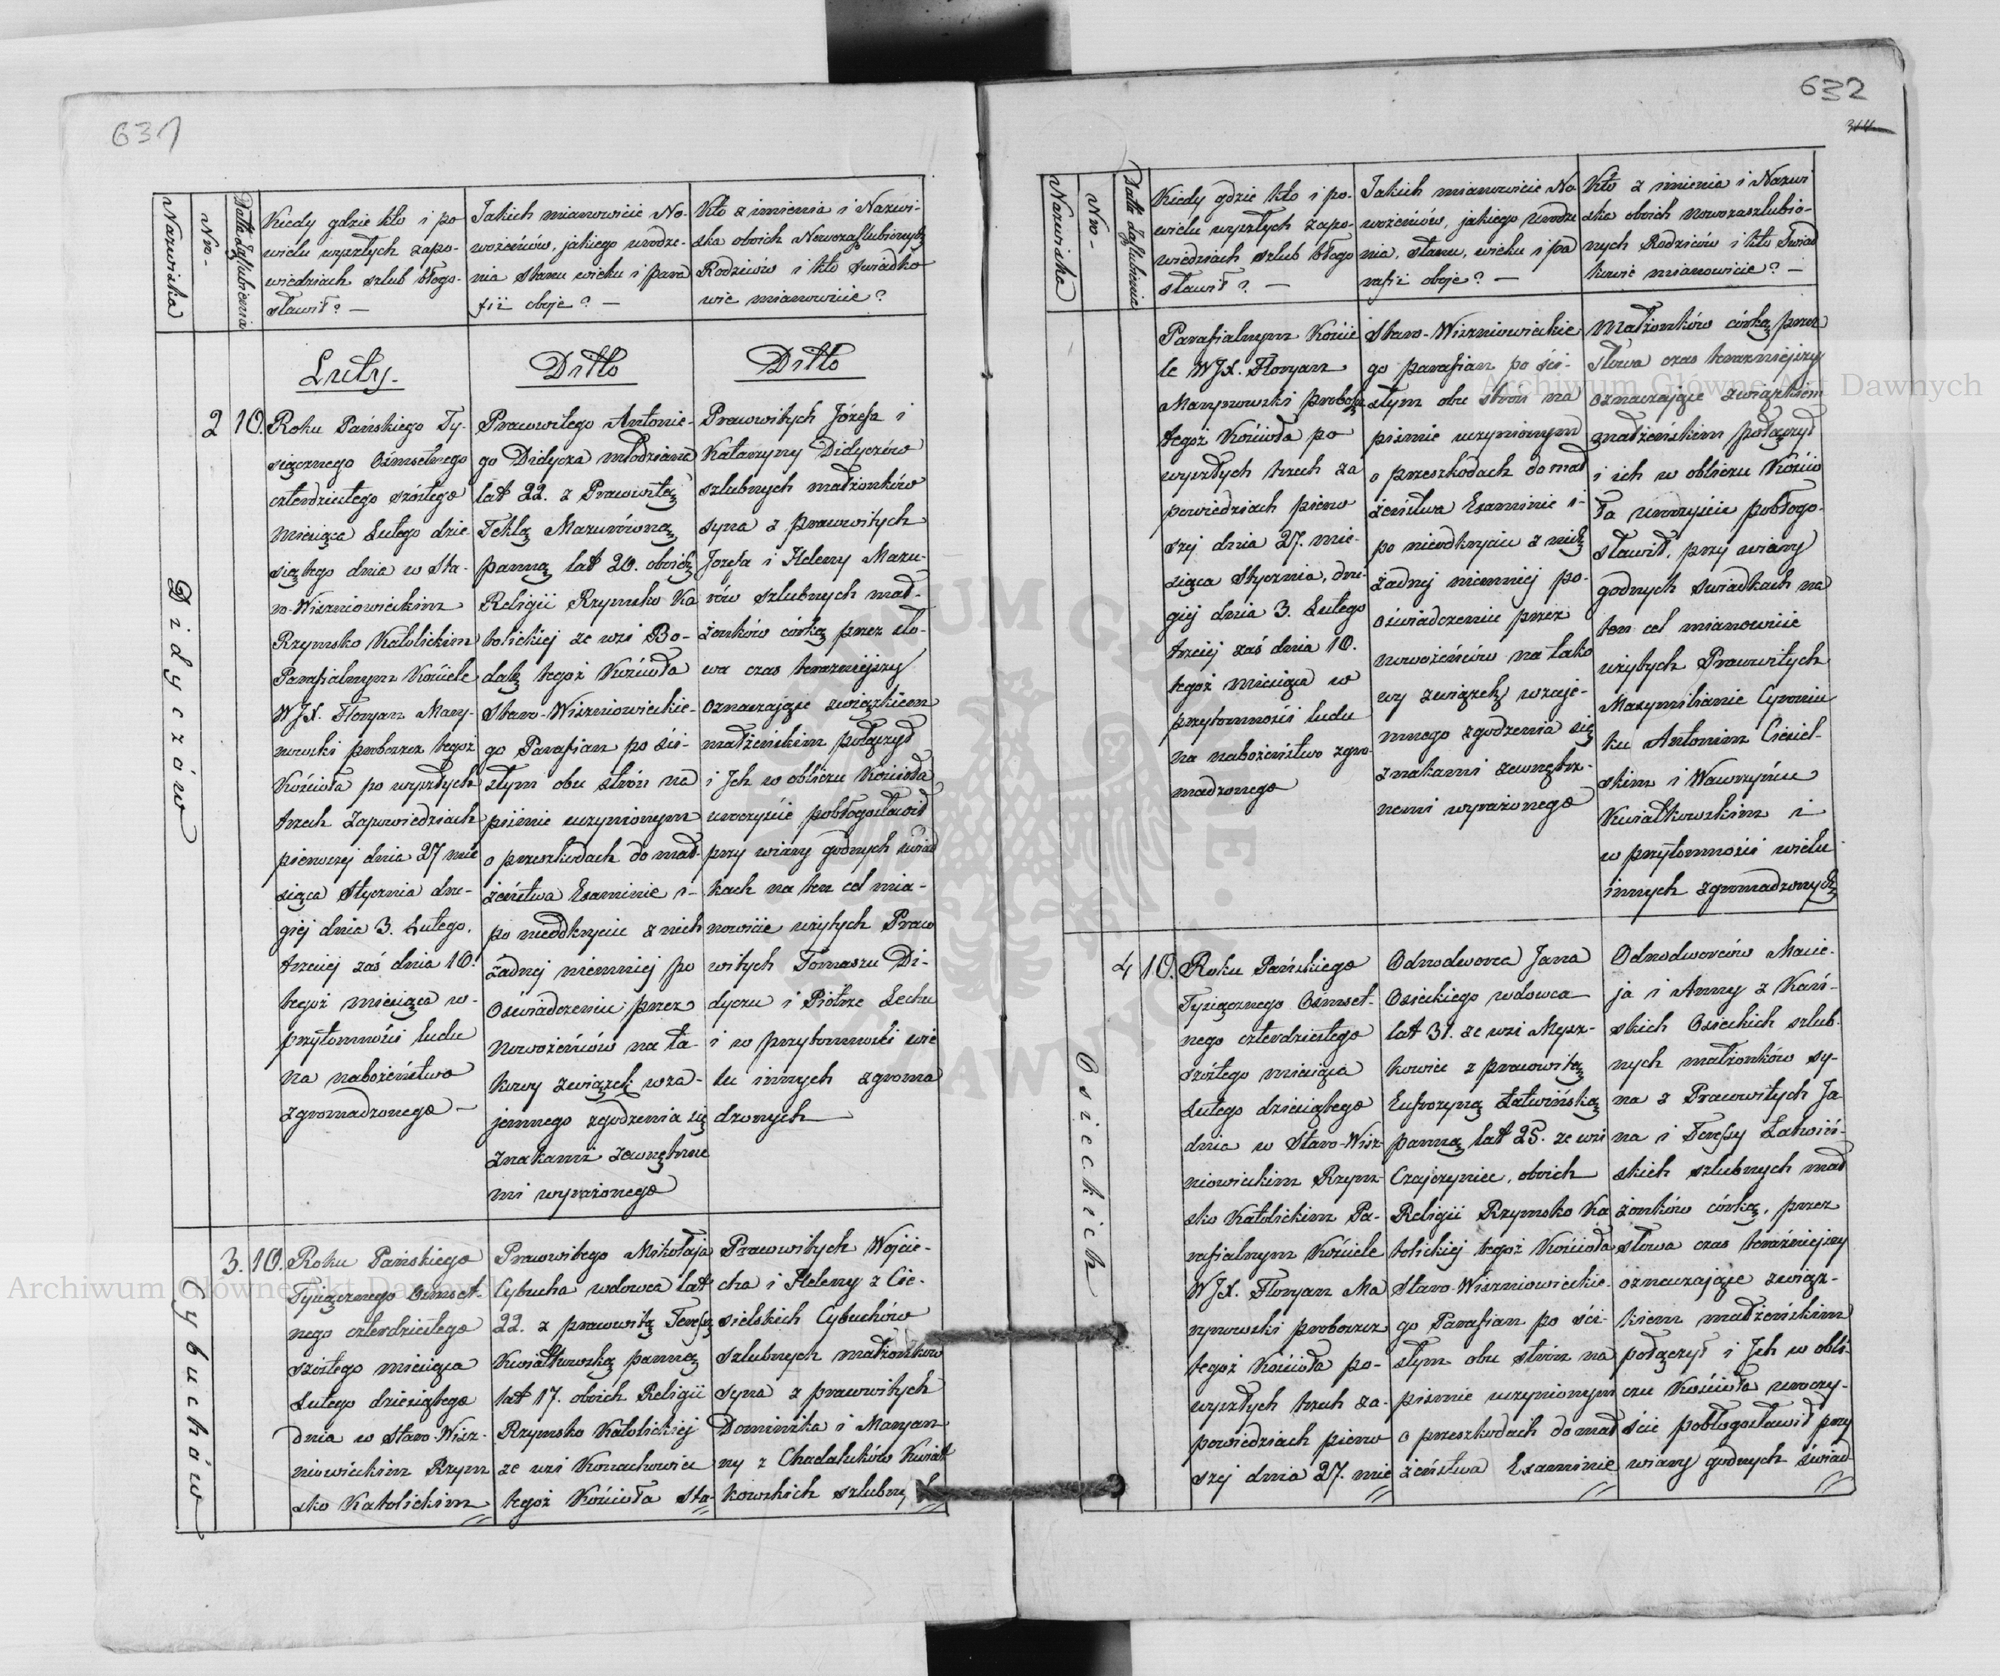 631
Nazwiska
Nro.
Data Zaślubienia
Kiedy gdzie kto i po
wielu wyszłych zapo-
wiedziach szlub błogo-
sławił? —
Jakich mianowicie No-
wożeńców, jakiego urodze-
nia stanu wieku i para
fii oboje? —
Kto z imienia i Nazwi-
ska oboich Nowozaślubionych
Rodziców i kto swiadko
wie mianowicie?
Luty.
Ditto
Ditto
Didyczów
2
10.
Roku Pańskiego Ty-
siącznego Ośmsetnego
czterdziestego szóstego
miesiąca Lutego dzie
siątego dnia w Sta-
ro-Wiszniowieckim
Rzymsko Katolickim
Parafialnym Kościele
WJX. Floryan Mary-
nowski proboszcz tegoż
Kościoła po wyszłych
trzech Zapowiedziach
pierwszej dnia 27 mie
siąca Stycznia dru-
giej dnia 3. Lutego,
trzeciej zaś dnia 10.
tegoż miesiąca w-
przytomności ludu
na nabożeństwo
zgromadzonego —
Prawowitego Antonie-
go Didycza młodziana
lat 22. z Prawowitą
Teklą Mazurówną
panną lat 20. oboich
Religii Rzymsko Ka
tolickiej ze wsi Bo-
dak tegoż Kościoła
Staro-Wiszniowieckie-
go Parafian po ści-
słym obu stron na
piśmie uczynionym
o przeszkodach do mał-
żeństwa Examinie i-
po nieodkryciu z nich
żadnej niemniej po
Oświadczeniu przez
Nowożeńców na ta-
kowy związek wza-
jemnego zgodzenia się
znakami zewnętrzne
mi wyrażonego
Prawowitych Józefa i
Katarzyny Didyczów
szlubnych małżonków
syna z prawowitych
Jozefa i Heleny Mazu-
rów szlubnych mał-
żonków córką przez sło-
wa czas teraźniejszy
oznaczające związkiem
małżeńskim połączył
i Ich w obliczu Kościoła
uroczyście pobłogosławił
przy wiary godnych świad
kach na ten cel mia-
nowicie użytych Prawo
witych Tomaszu Di-
dyczu i Piotrze Lechu
i w przytomności wie
lu innych zgroma
dzonych
Cybuchów
3.
10.
Roku Pańskiego
Tysiącznego Ośmset-
nego czterdziestego
szóstego miesiąca
Lutego dziesiątego
Dnia w Staro-Wisz-
niowieckim Rzym
sko Katolickim
Prawowitego Mikołaja
Cybucha wdowca lat
22. z prawowitą Teressą
Kwiatkowską panną
lat 17. oboich Religii
Rzymsko Katolickiej
ze wsi Konachowiec
tegoż Kościoła Sta-
Prawowitych Wojcie-
cha i Heleny z Cie-
sielskich Cybuchów
szlubnych małżonków
syna z prawowitych
Dominika i Maryan
ny z Chadaluków Kwiat
kowskich szlubnych
632
Nazwiska
Nro-
Data Zaślubienia
Kiedy gdzie kto i po-
wielu wyszłych zapo-
wiedziach szlub błogo
sławił? —
Jakich mianowicie No-
wożeńców, jakiego urodze
nia, stanu, wieku i pa
rafii oboje? —
Kto z imienia i Nazwi
ska oboich nowozaszlubio-
nych Rodziców i kto Swiad
kowie mianowicie? —
Parafialnym Koście
le WJX. Floryan
Marynowski proboszcz
tegoż Kościoła po
wyszłych trzech za
powiedziach pierw
szej dnia 27. mie-
siąca Stycznia, dru-
giej dnia 3. Lutego
trzeciej zaś dnia 10.
tegoż miesiąca w
przytomności ludu
na nabożeństwo zgro
madzonego
Staro-Wiszniowieckie
go parafian po ści-
słym obu stron na
piśmie uczynionym
o przeszkodach do mał
żeństwa Examinie i-
po nieodkryciu z nich
żadnej niemniej po-
oświadczeniu przez
nowożeńców na tako
wy związek wzaje-
mnego zgodzenia się
znakami zewnętrz-
nemi wyrażonego
małżonków córką przez
słowa czas teraźniejszy
oznaczające związkiem
małżeńskim połączył
i ich w obliczu Kościo
ła uroczyście pobłogo-
sławił, przy wiary
godnych swiadkach na
ten cel mianowicie
użytych Prawowitych
Maxymilianie Cyroniu
ku Antonim Ciesiel-
skim i Wawrzyńcu
Kwiatkowskim i
w przytomności wielu
innych zgromadzonych
Osieckich
4
10.
Roku Pańskiego
Tysiącznego Osmset-
nego czterdziestego
szóstego miesiąca
Lutego dziesiątego
dnia w Staro-Wisz-
niowieckim Rzym-
sko Katolickim Pa-
rafialnym Kościele
WJX. Floryan Ma
rynowski proboszcz
tegoż Kościoła po-
wyszłych trzech za-
powiedziach pierw
szej dnia 27. mie
Odnodworca Jana
Osieckiego wdowca
lat 31. ze wsi Mysz-
kowiec z prawowitą
Eufrozyną Łatwińską
panną lat 25. ze wsi
Czajczyniec, oboich
Religii Rzymsko Ka
tolickiej tegoż Kościoła
Staro-Wiszniowieckie-
go Parafian po ści-
słym obu stron na
piśmie uczynionym
o przeszkodach do mał
żeństwa Examinie
Odnodworców Macie-
ja i Anny z Kań-
skich Osieckich szlub-
nych małżonków sy-
na z Prawowitych Ja
na i Teressy Łatwiń-
skich szlubnych mał
żonków córką, przez
słowa czas teraźniejszy
oznaczające związ-
kiem małżeńskim
połączył i Ich w obli-
czu Kościoła uroczy-
ście pobłogosławił przy
wiary godnych świad
Archiwum Główne Akt Dawnych
Archiwum Główne Akt Dawnych